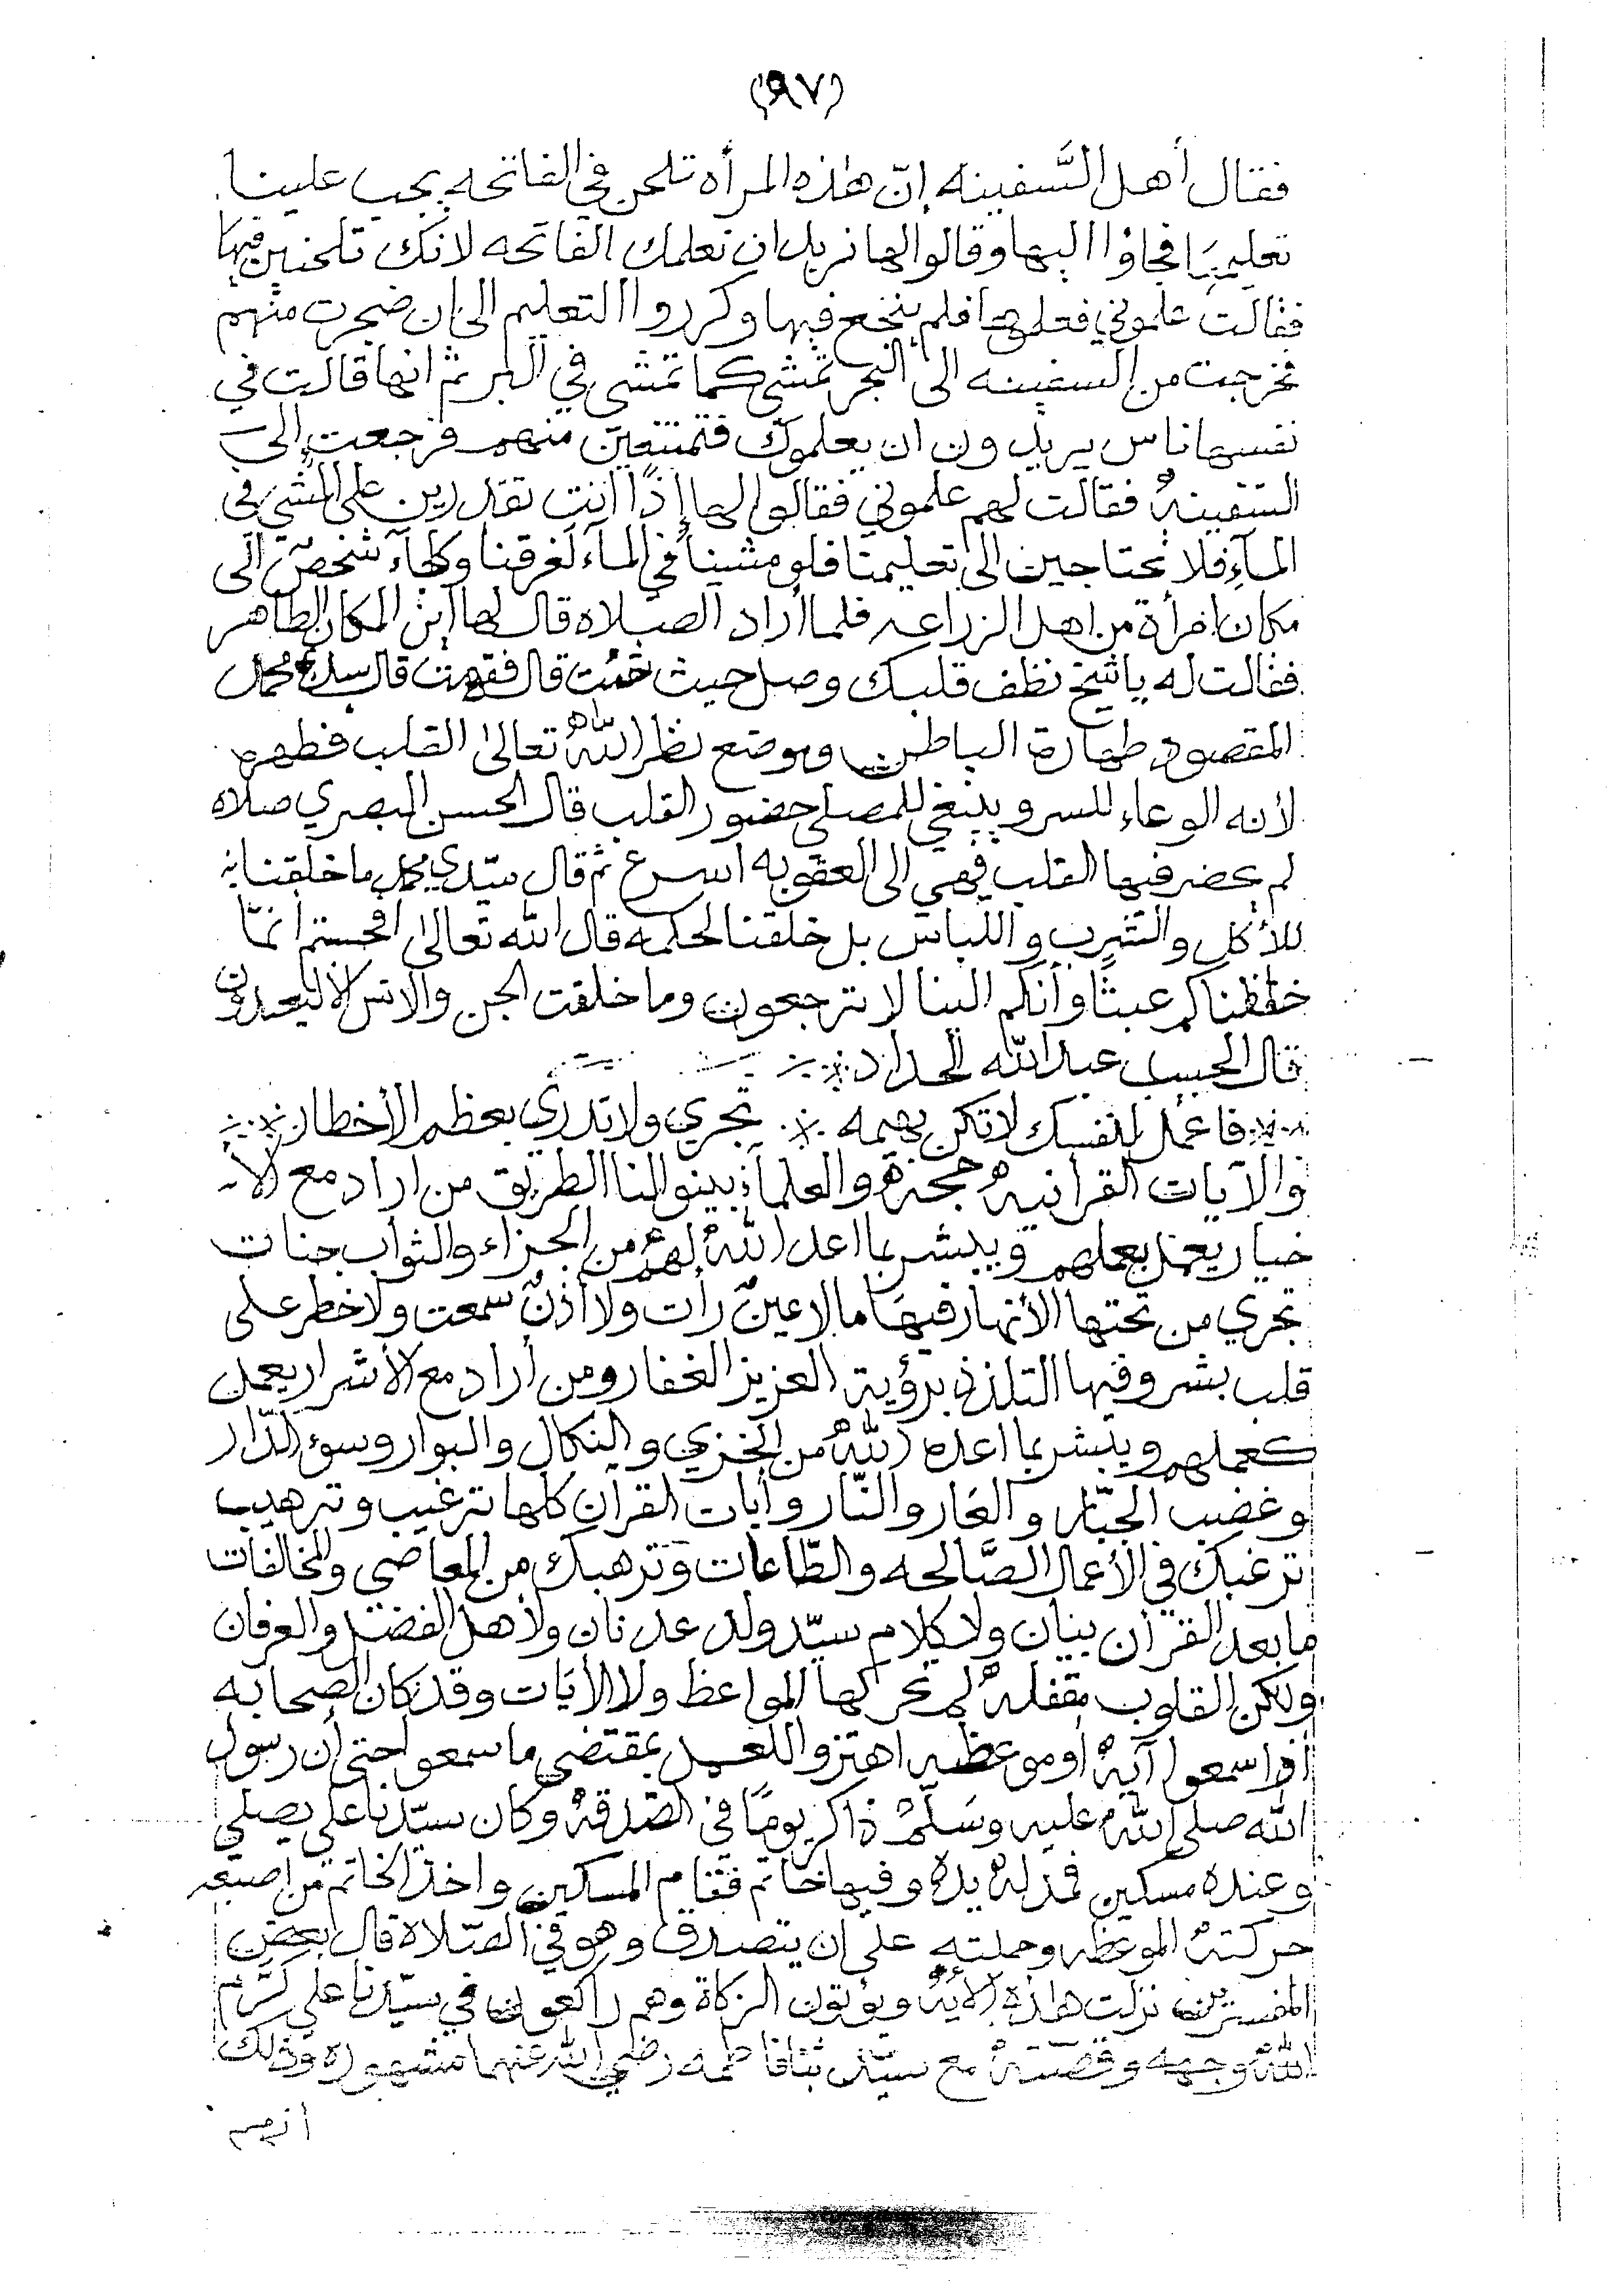 (٩٧)
فقال أهل السَّفينه إنّ هاذه المرأه تلحن في الفاتحه يجب علينا
تعليمها فجاؤا اليها وقالوا لها نريد ان نعلمك الفاتحه لانك تلحنين فيها
فقالت علموني فعلموها فلم ينجع فيها وكرروا التعليم الى ان ضجرت منهم
فخرجت من السفينه الى البحر تمشي كما تمشي في البر ثم انها قالت في
نفسها ناس يريدون ان يعلموك فتمتنعين منهم فرجعت إلى
السّفينةُ فقالت لهم علموني فقالوا لها إذًا انتِ تقدرين على المشي في
المآءِ فلا تحتاجين الى تعليمنا فلو مشينا في المآء لغرقنا وكلها جآء شخصٌ الى
مكان امرأة من اهل الزراعه فلما أراد الصلاه قال لها أين المكان الطاهر
فقالت له يا شيخ نظف قلبك وصل حيث شئت قال ففهمت قال سيدي محمد
المقصود طهارة الباطن وموضع نظر اللهُ تعالى القلب فطهره
لأنه الوعاء للسر وينبغي للمصلي حضور القلب قال الحسن البصري صلاه
لم يحضر فيها القلب فهي الى العقوبه اسرع ثم قال سيّدي محمد ما خلقنا
للأكل والشرب واللباس بل خلقنا لحكمه قال الله تعالى افحسبتم انّما
خلقناكم عبثًا وأنكم الينا لا ترجعون وما خلقت الجن والانس إلا ليعبدون
قال الحبيب عبد الله الحداد
فاعمل لنفسك لا تكن بهيمه ⁂ تجري ولا تدري بعظم الأخطار
والآيات القرآنيهُ حجةٌ والعلمآء بينوا لنا الطريق من اراد مع الأ
خيار يعمل بعملهم ويبشر بما اعد اللهُ لهم من الجزاء والثواب جنات
تجري من تحتها الأنهار فيها ما لا عينٌ رأت ولا أذنٌ سمعت ولا خطر على
قلب بشر وفيها التلذذ برؤية العزيز الغفار ومن أراد مع الأشرار يعمل
كعملهم ويبشر بما اعده اللهُ من الخزي والنكال والبوار وسوء الدّار
وغضب الجبّار والعار والنّار وأيات القرآن كلها ترغيب وترهيب
ترغبك في الأعمال الصَّالحه والطّاعات وترهبك من المعاصي والمخالفات
ما بعد القرآن بيان ولا كلام سيّد ولد عدنان ولا هل الفضل والعرفان
ولكن القلوب مقفلهٌ لم تحركها المواعظ ولا الأيات وقد كان الصحابه
اذا سمعوا آيةً أو موعظه اهتزوا للعمل بمقتضى ما سمعوا حتى أن رسول
الله صلى اللهُ عليه وسَلَّمْ ذاكر يومًا في الصّدقهْ وكان سيّدنا علي يصلي
وعنده مسكين فمد لهُ يده وفيها خاتم فقام المسكين واخذ الخاتم من اصبعه
حركتهُ الموعظه وحملته على ان يتصدق وهو في الصّلاة قال بعض
المفسّرين نزلت هاذه الأيهُ ويؤتون الزكاة وهم راكعون في سيّدنا علي كرَّم
اللهُ وجهه وقصّتهُ مع سيّدتنا فاطمه رضي الله عنهما مشهوره وذلك
أنهم